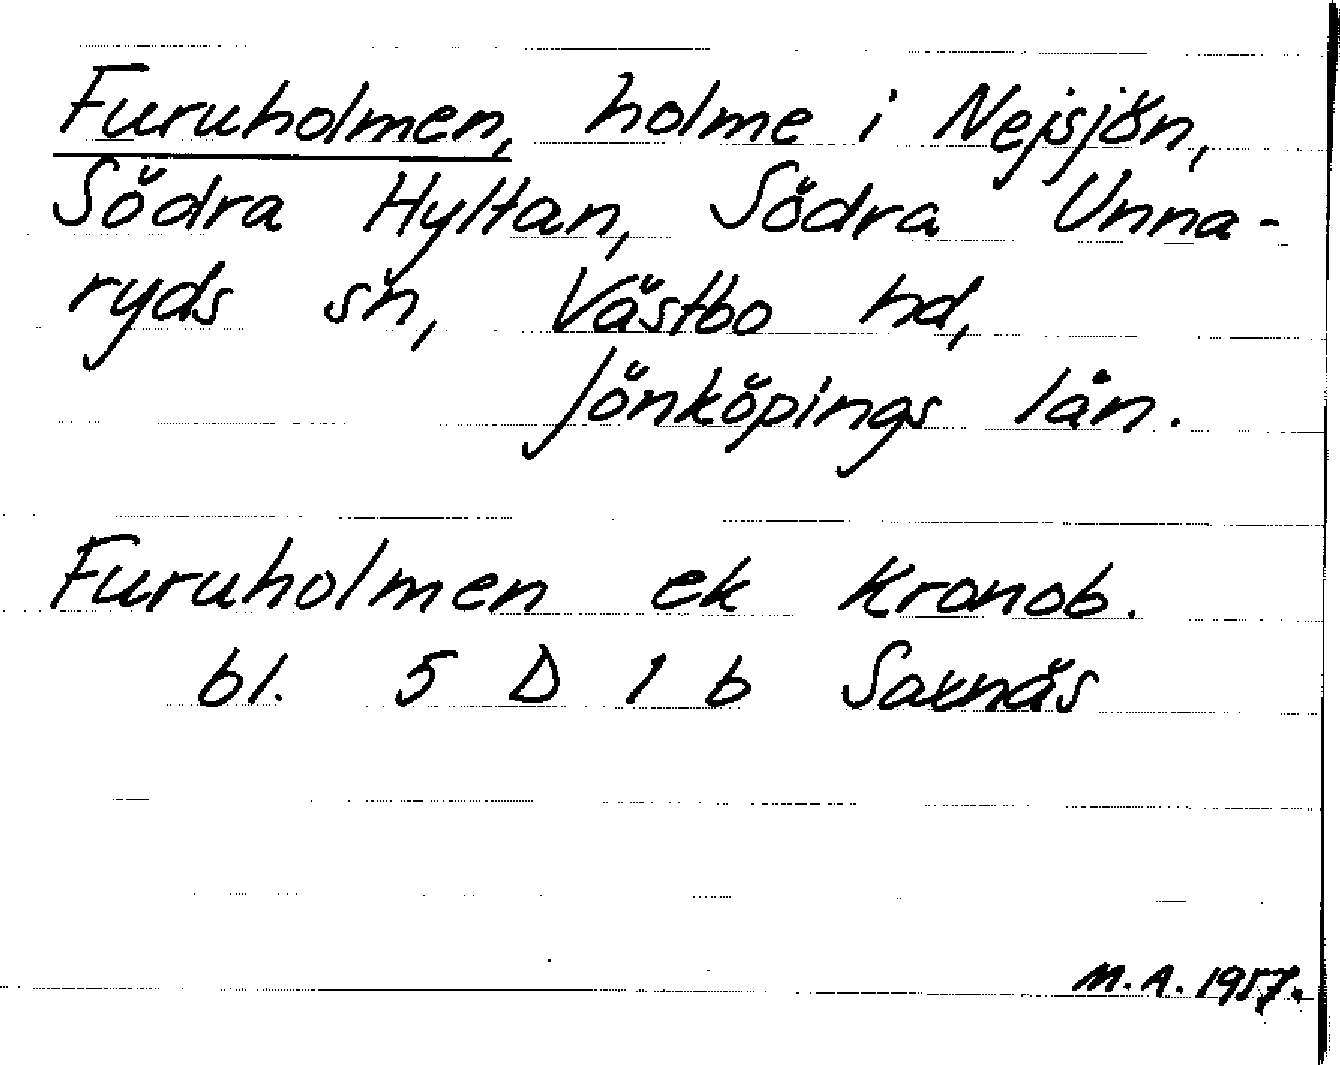 Furuholmen, holme i Nejsjön,
Södra Hyltan, Södra Unna-
ryds sn, Västbo hd,
Jönköpings län.
Furuholmen ek Kronob.
bl. 5 D 1 b Saxnäs
M.A. 1957.